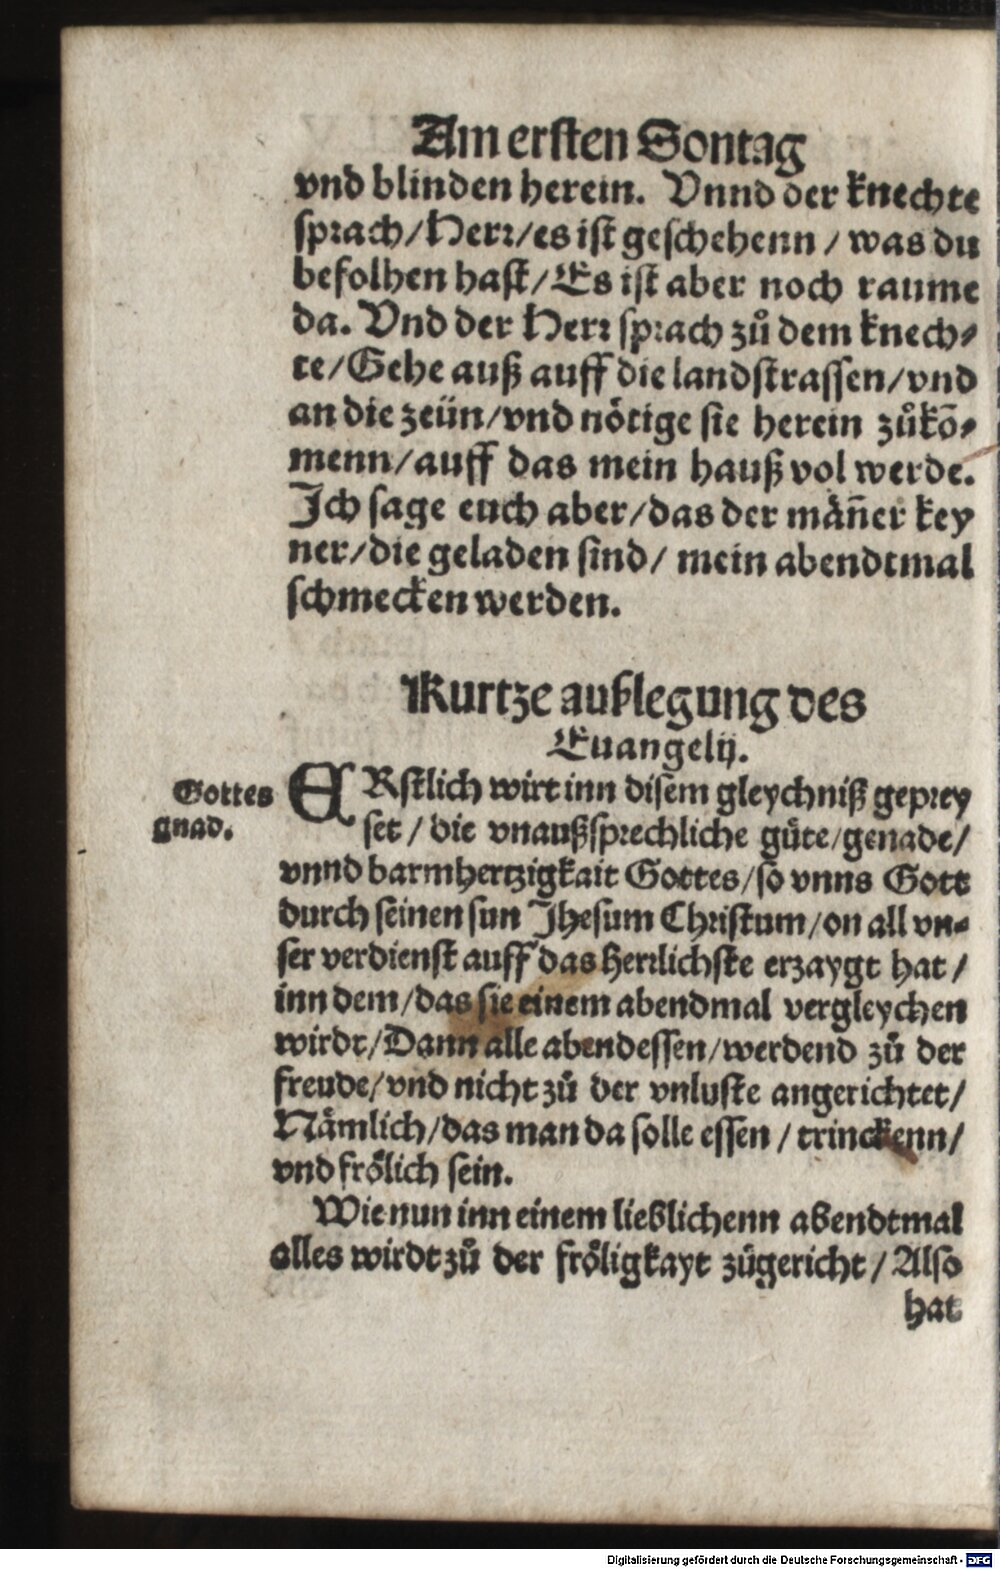 Am ersten Sontag
vnd blinden herein. Vnnd der knechte
sprach/Herr/es ist geschehenn / was du
befolhen hast/Es ist aber noch raume
da. Vnd der Herr sprach zů dem knech-
te/Gehe auß auff die landstrassen/vnd
an die zeün/vnd nötige sie herein zůkō-
menn/auff das mein hauß vol werde.
Ich sage euch aber/das der män̄er key
ner/die geladen sind/ mein abendtmal
schmecken werden.
Kurtze außlegung des
Euangelij.
Gottes
gnad.
ERstlich wirt inn disem gleychniß geprey
set / die vnaußsprechliche güte/genade/
vnnd barmhertzigkait Gottes/so vnns Gott
durch seinen sun Jhesum Christum/on all vn-
ser verdienst auff das herrlichste erzaygt hat /
inn dem/das sie einem abendmal vergleychen
wirdt/Dann alle abendessen/werdend zů der
freude/vnd nicht zů der vnluste angerichtet/
Nämlich/das man da solle essen / trinckenn/
vnd frölich sein.
Wie nun inn einem lieblichenn abendtmal
alles wirdt zů der fröligkayt zůgericht / Also
hat
Digitalisierung gefördert durch die Deutsche Forschungsgemeinschaft - DFG